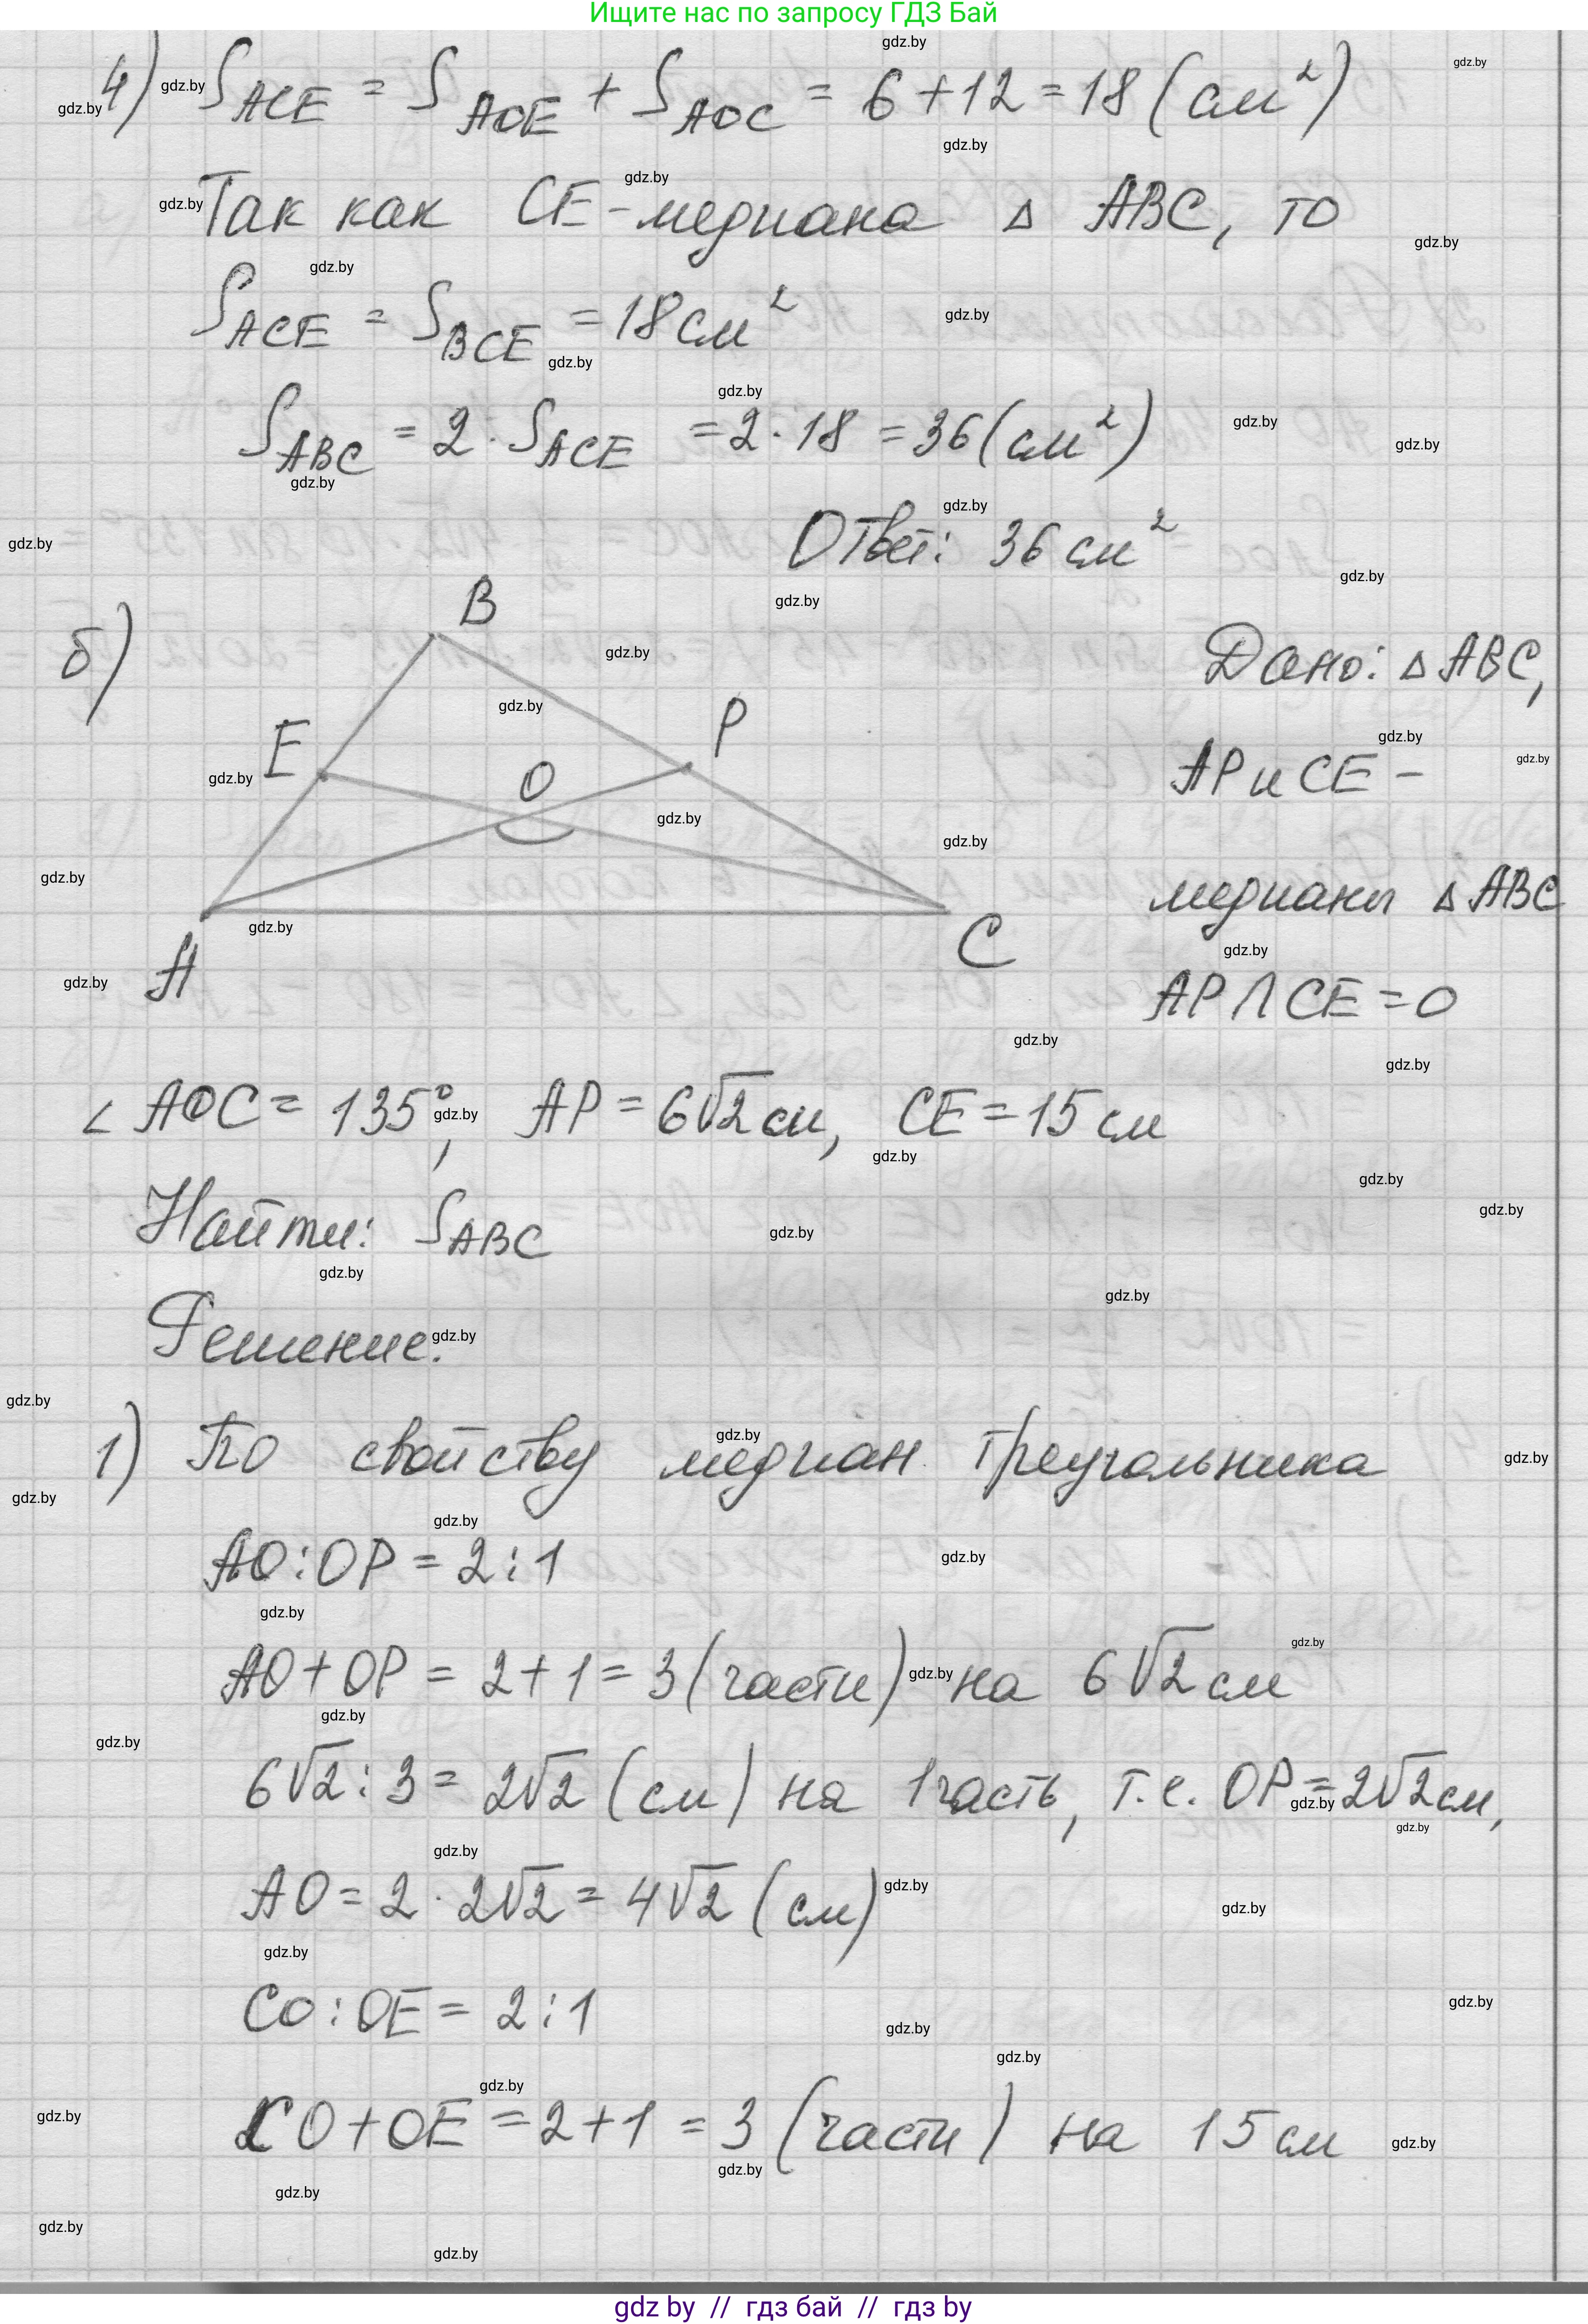 Ищите нас по запросу ГДЗ Бай
4) S ACE = S AOE + S AOC = 6 + 12 = 18 (см²)
Так как CE - медиана △ ABC, то
S ACE = S BCE = 18 см²
S ABC = 2 · S ACE = 2 · 18 = 36 (см²)
Ответ: 36 см²
б)
B
E
P
O
A
C
Дано: △ ABC,
AP и CE -
медианы △ ABC
AP ∩ CE = O
∠ AOC = 135°, AP = 6√2 см, CE = 15 см
Найти: S ABC
Решение.
1) По свойству медиан треугольника
AO : OP = 2 : 1
AO + OP = 2 + 1 = 3 (части) на 6√2 см
6√2 : 3 = 2√2 (см) на 1 часть, т.е. OP = 2√2 см,
AO = 2 · 2√2 = 4√2 (см)
CO : OE = 2 : 1
CO + OE = 2 + 1 = 3 (части) на 15 см
gdz by // гдз бай // гдз by